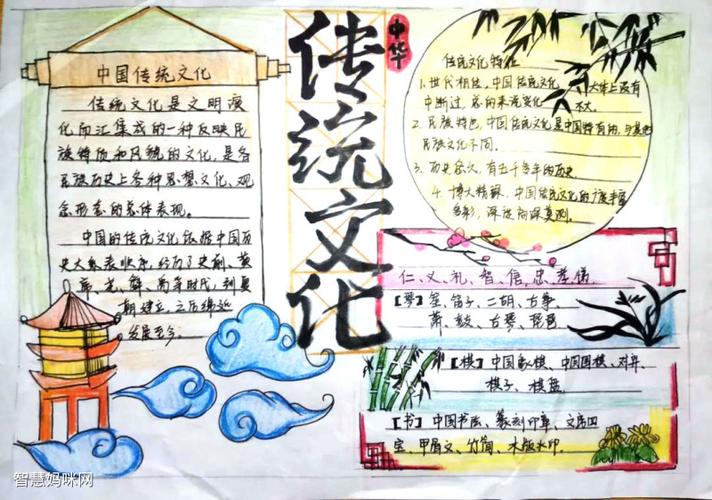 中国传统文化
传统文化是文明演
化而汇集成的一种反映民
族特质和风貌的文化，是各
民族历史上各种思想文化、观
念形态的总体表现。
中国的传统文化依据中国历
史大系表顺序，经历了史前、黄
帝、尧、舜、禹等时代，到夏
朝建立，之后绵延
发展至今
中华
传统文化
传统文化特征
1. 世代相传，中国传统文化 大体上没有
中断过，总的来说变化 不大。
2. 民族特色，中国传统文化是中国特有的，与其他
民族文化不同。
3. 历史悠久，有五千多年的历史
4. 博大精深，中国传统文化的广度丰富
多彩，深度
仁、义、礼、智、信、忠、孝、悌
【琴】笙、笛子、二胡、古筝
萧、鼓、古琴、琵琶
【棋】中国象棋、中国围棋、对弈、
棋子、棋盘
【书】中国书法、篆刻印章、文房四
宝、甲骨文、竹简、木版水印.
智慧妈咪网